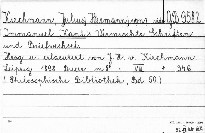 Kirchmann, Julius Hermann von
Immanuel Kants Vermischte Schriften
und Briefwechsel.
Hrsg. u. erläutert von J. H. v. Kirchmann
Leipzig 1898 Dürr m 8° VIII + 546
(Philosophische Bibliothek, Bd 50.)